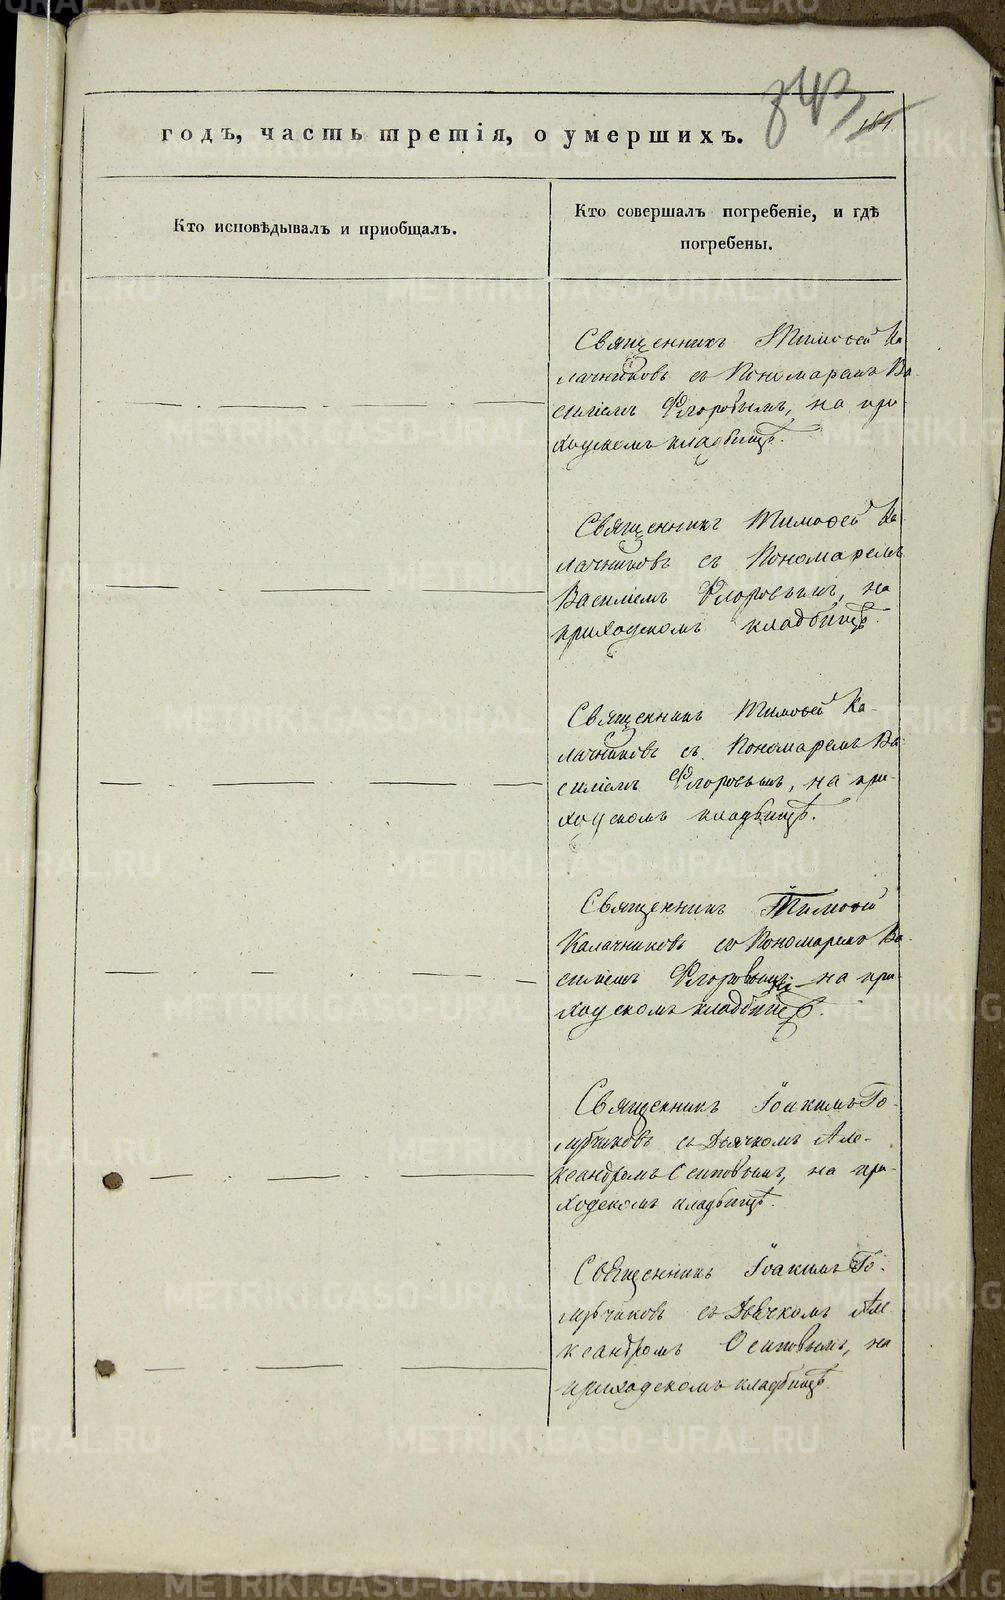 годъ, часть третія, о умершихъ.
843
Кто исповѣдывалъ и приобщалъ.
Кто совершалъ погребеніе, и гдѣ
погребены.
Священникъ Тимоѳей Ка
лачниковъ съ Пономаремъ Ва
силіемъ Флоровымъ, на при
ходскомъ кладбищѣ.
Священникъ Тимоѳей Ка
лачниковъ съ Пономаремъ
Василіемъ Флоровымъ, на
приходскомъ кладбищѣ.
Священникъ Тимоѳей Ка-
лачниковъ съ Пономаремъ Ва
силіемъ Флоровымъ, на при-
ходскомъ кладбищѣ.
Священникъ Тимоѳей
Калачниковъ съ Пономаремъ Ва
силіемъ Флоровымъ на при
ходскомъ кладбищѣ.
Священникъ Іоакимъ Го-
лубчиковъ съ Дьячкомъ Але-
ксандромъ Осиповымъ, на при-
ходскомъ кладбищѣ.
Священникъ Іоакимъ Го-
лубчиковъ съ Дьячкомъ Але
ксандромъ Осиповымъ, на
приходскомъ кладбищѣ.
METRIKI.GASO-URAL.RU